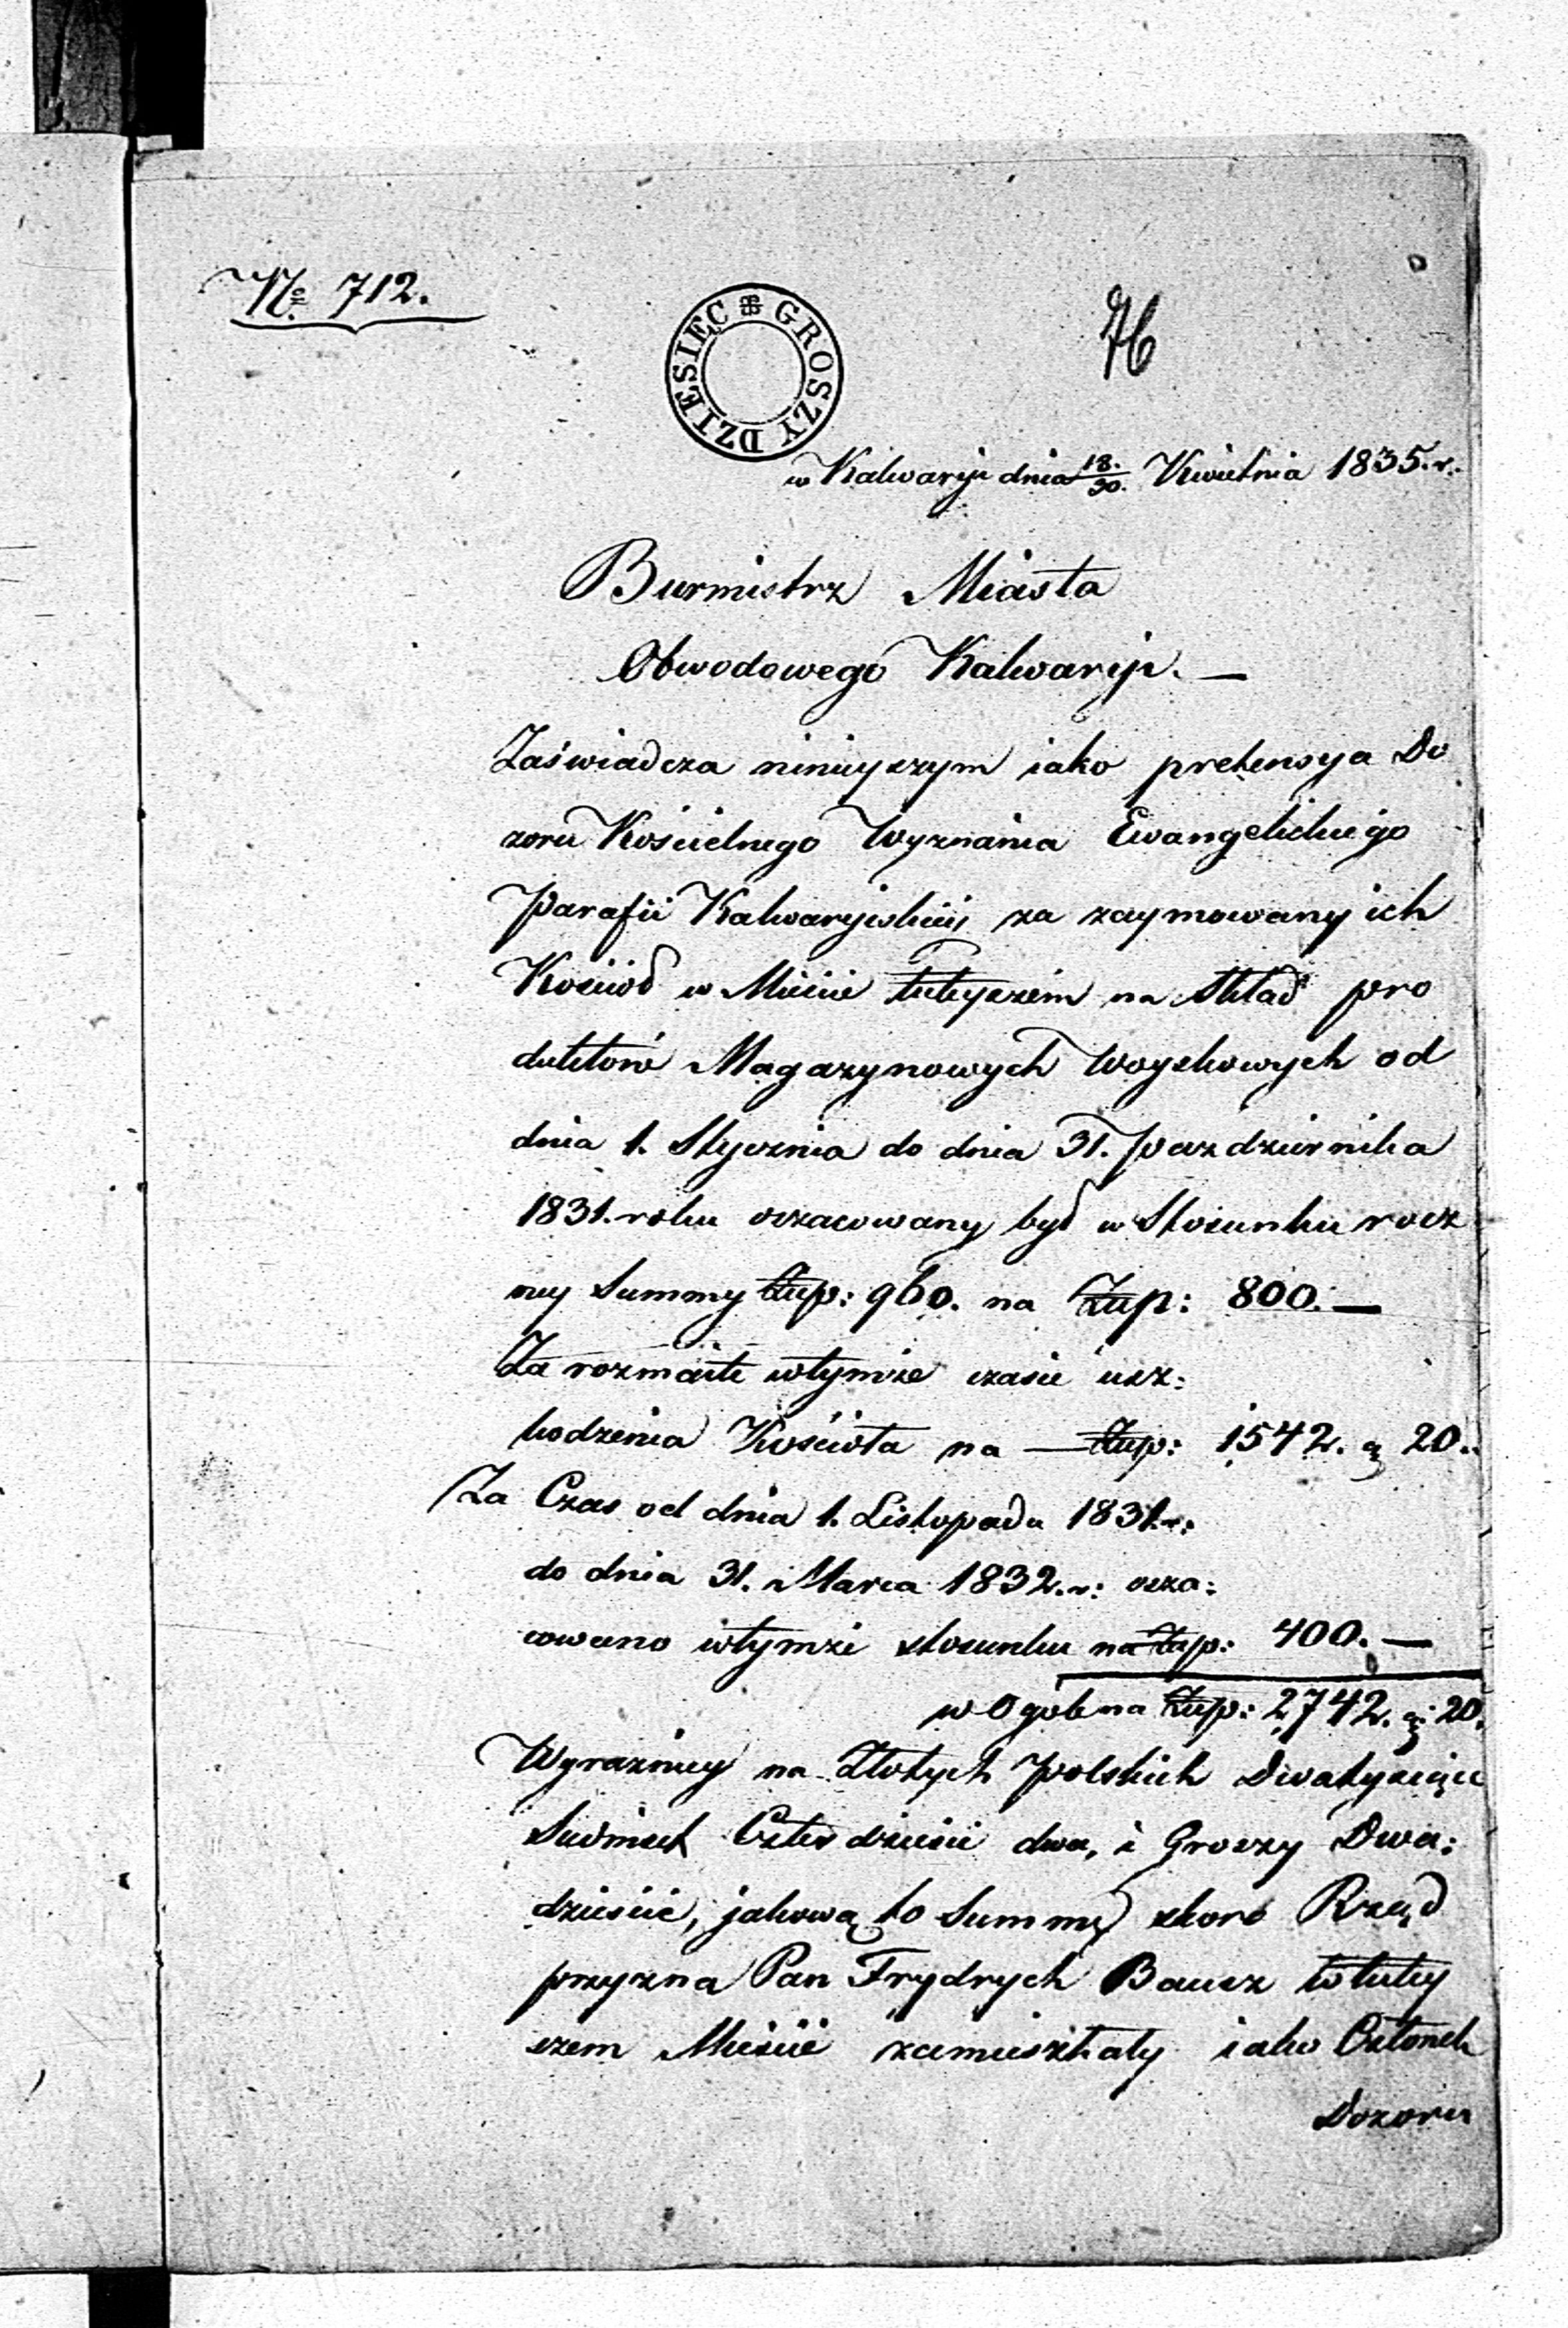 No 712.
DZIESIĘĆ GROSZY
76
w Kalwaryi dnia 18./30. Kwietnia 1835. r.
Burmistrz Miasta
Obwodowego Kalwaryi. —
Zaświadcza ninieyszym iako pretensya Do
zoru Kościelnego Wyznania Ewangelickiego
Parafii Kalwaryiskiéj za zaymowany ich
Kościoł w Mieście tuteyszém na Skład pro
duktow Magazynowych Woyskowych od
dnia 1. Stycznia do dnia 31. Pazdziernika
1831. roku oszacowany był w Stosunku rocz
ney Summy Złp: 960. na Złp: 800. —
Za rozmaite wtymże czasie usz:
kodzenia Kościoła na — Złp: 1542. g 20.
Za Czas od dnia 1. Listopada 1831. r:
do dnia 31. Marca 1832. r: osza:
cowano wtymże stosunku na Złp: 400. —
w Ogóle na Złp: 2742. g: 20.
Wyrazniey na Złotych Polskich Dwatysiące
Siedmset Czterdzieści dwa, i Groszy Dwa:
dzieście, jakową to Summę skoro Rząd
przyzna Pan Frydrych Bausz w tutey
szem Mieście zamieszkały iako Członek
Dozoru